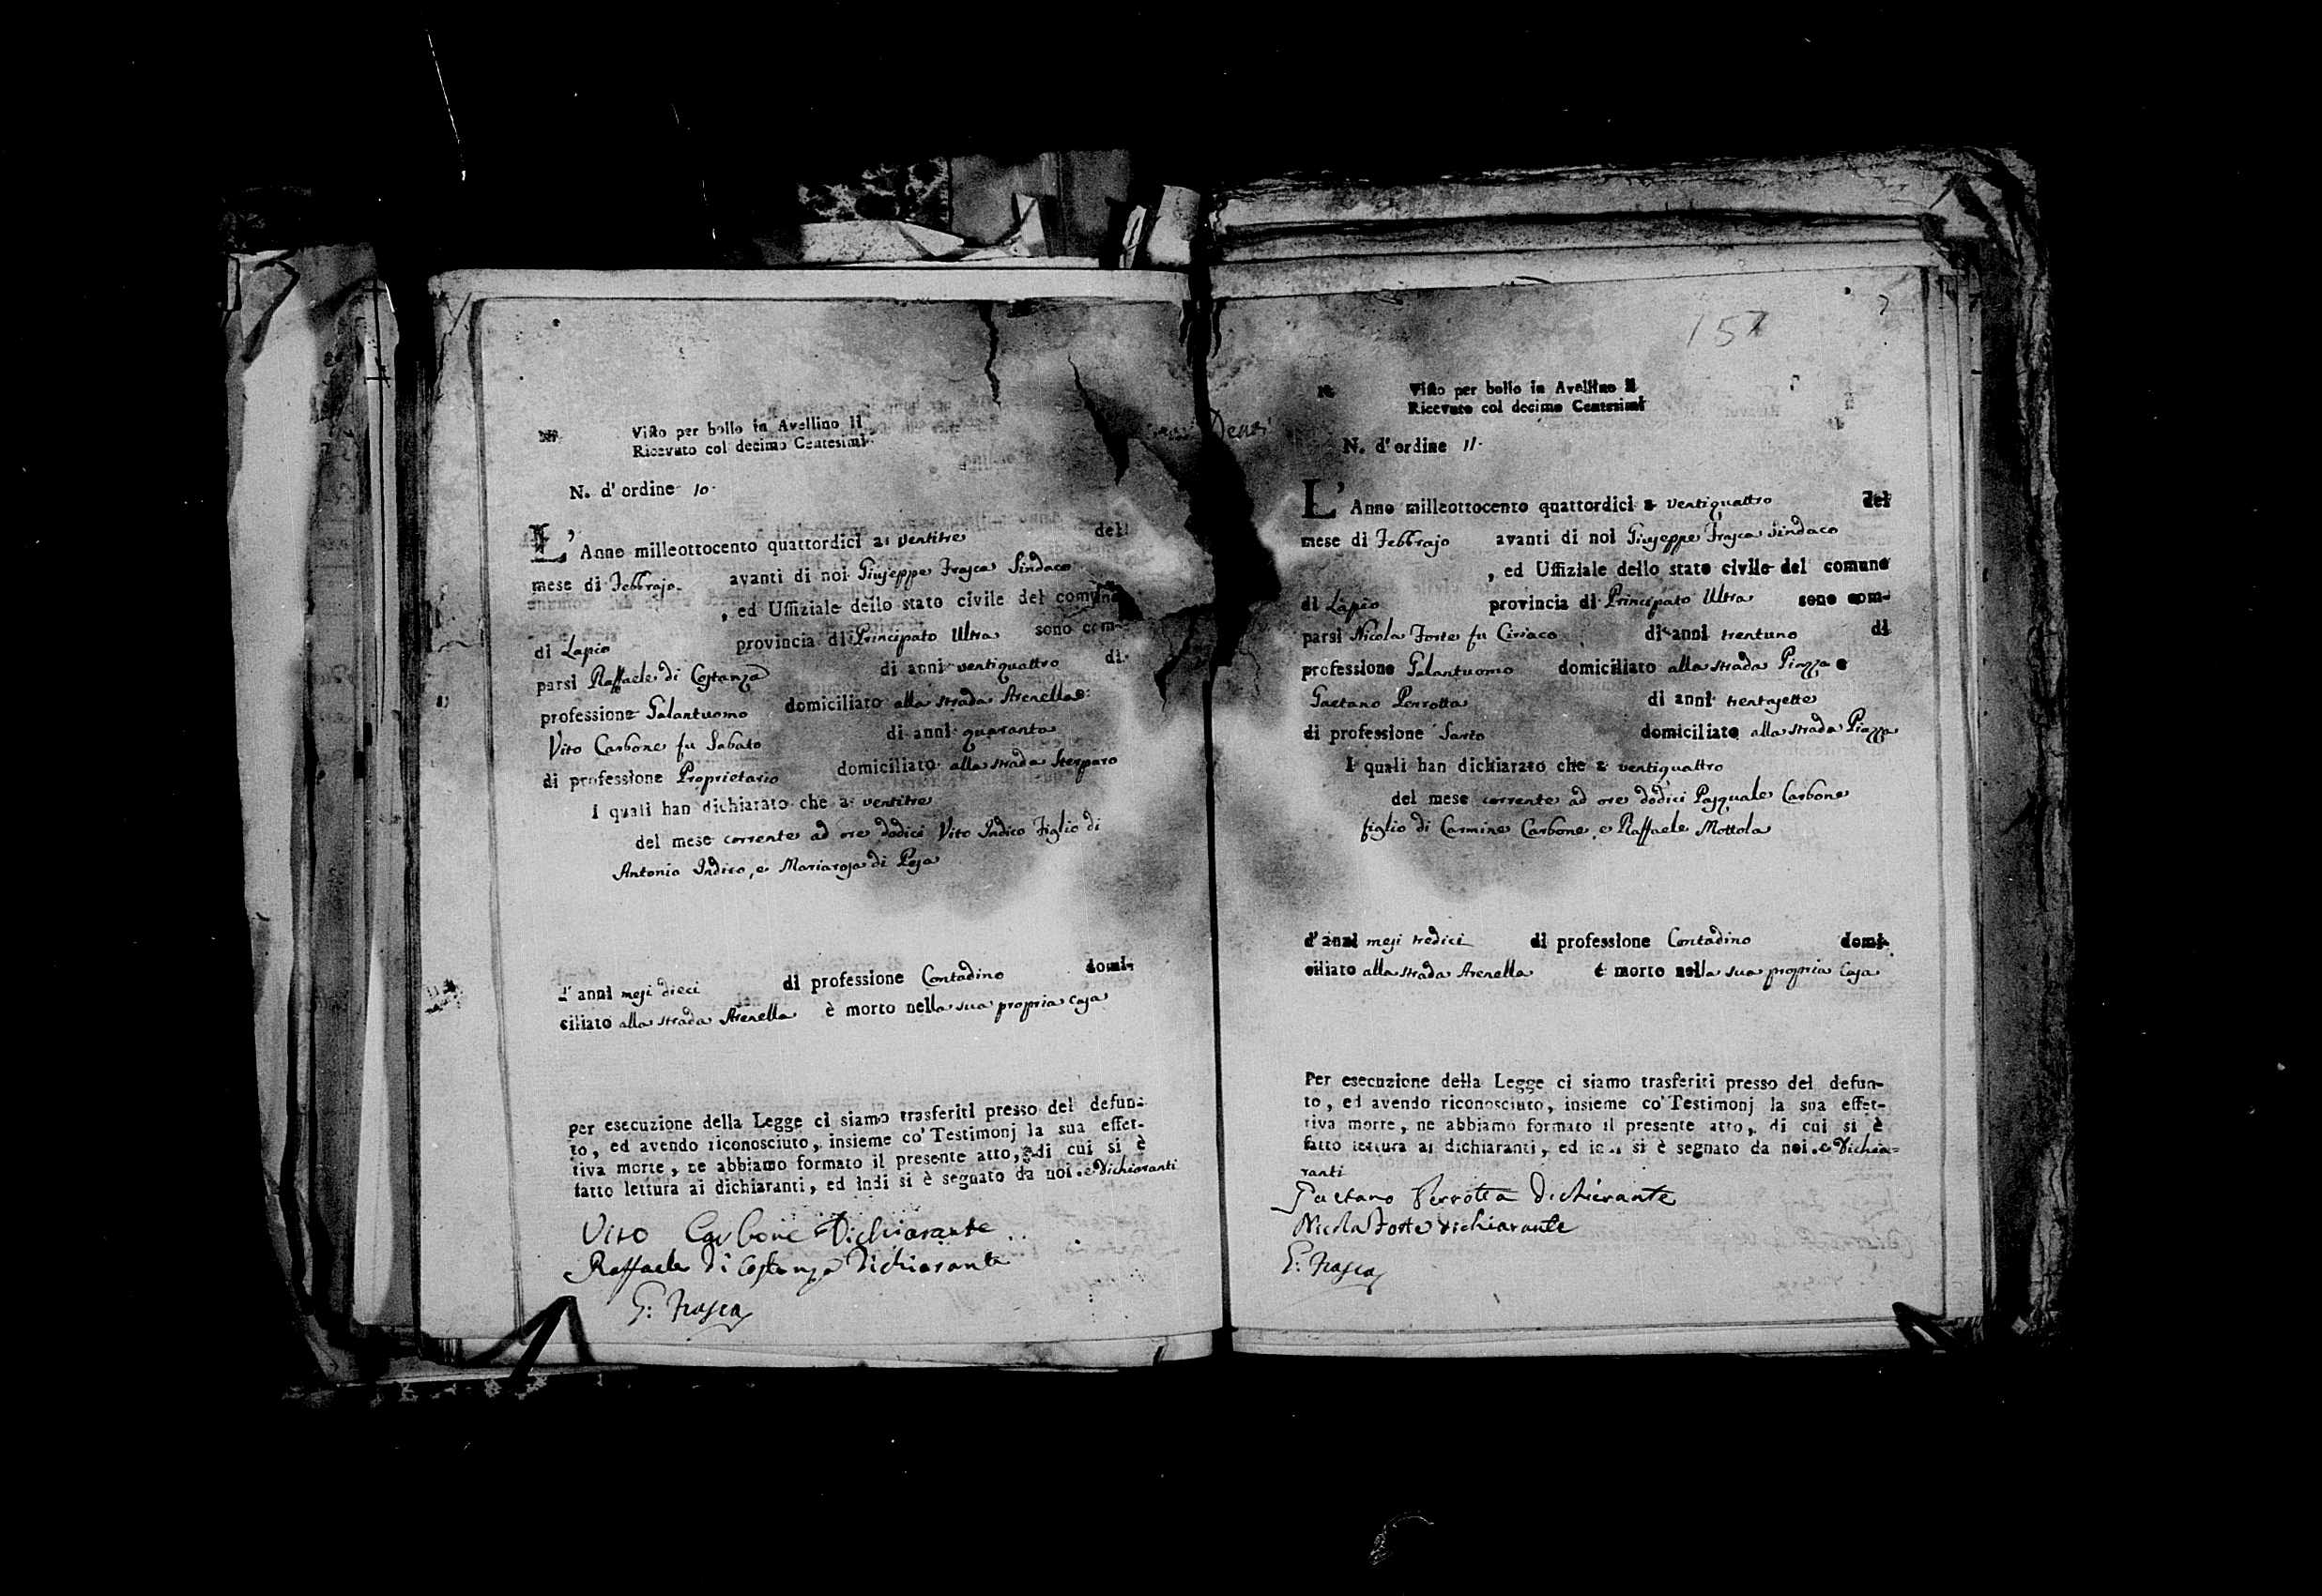 Visto per bollo in Avellino Il
Ricevuto col decimo Centesimi
N. d'ordine 10.
L'Anno milleottocento quattordici a ventitre del
mese di Febbrajo avanti di noi Giuseppe Frasca Sindaco
, ed Uffiziale dello stato civile del comune
di Lapio provincia di Principato Ultra sono com-
parsi Raffaele di Costanza di anni ventiquattro di
professione Galantuomo domiciliato alla strada Arenella e
Vito Carbone fu Sabato di anni quaranta
di professione Proprietario domiciliato alla strada Sterparo
I quali han dichiarato che a ventitre
del mese corrente ad ore dodici Vito Indico Figlio di
Antonio Indico, e Mariarosa di Peja
d'anni mesi dieci di professione Contadino domi-
ciliato alla strada Arenella è morto nella sua propria casa
Per esecuzione della Legge ci siamo trasferiti presso del defun-
to, ed avendo riconosciuto, insieme co' Testimonj la sua effet-
tiva morte, ne abbiamo formato il presente atto, di cui si è
fatto lettura ai dichiaranti, ed indi si è segnato da noi. e Dichiaranti
Vito Carbone Dichiarante
Raffaele di Costanza Dichiarante
G: Frasca
157
7
Visto per bollo in Avellino Il
Ricevuto col decimo Centesimi
N. d'ordine 11.
L'Anno milleottocento quattordici a ventiquattro del
mese di Febbrajo avanti di noi Giuseppe Frasca Sindaco
, ed Uffiziale dello stato civile del comune
di Lapio provincia di Principato Ultra sono com-
parsi Nicola Forte fu Ciriaco di anni trentuno di
professione Galantuomo domiciliato alla strada Piazza e
Gaetano Perrotta di anni trentasette
di professione Sarto domiciliato alla strada Piazza
I quali han dichiarato che a ventiquattro
del mese corrente ad ore dodici Pasquale Carbone
figlio di Carmine Carbone, e Raffaele Mottola
d'anni mesi tredici di professione Contadino domi-
ciliato alla strada Arenella è morto nella sua propria Casa
Per esecuzione della Legge ci siamo trasferiti presso del defun-
to, ed avendo riconosciuto, insieme co' Testimonj la sua effet-
tiva morte, ne abbiamo formato il presente atto, di cui si è
fatto lettura ai dichiaranti, ed indi si è segnato da noi. e Dichia=
ranti
Gaetano Perrotta Dichiarante
Nicola Forte dichiarante
G: Frasca